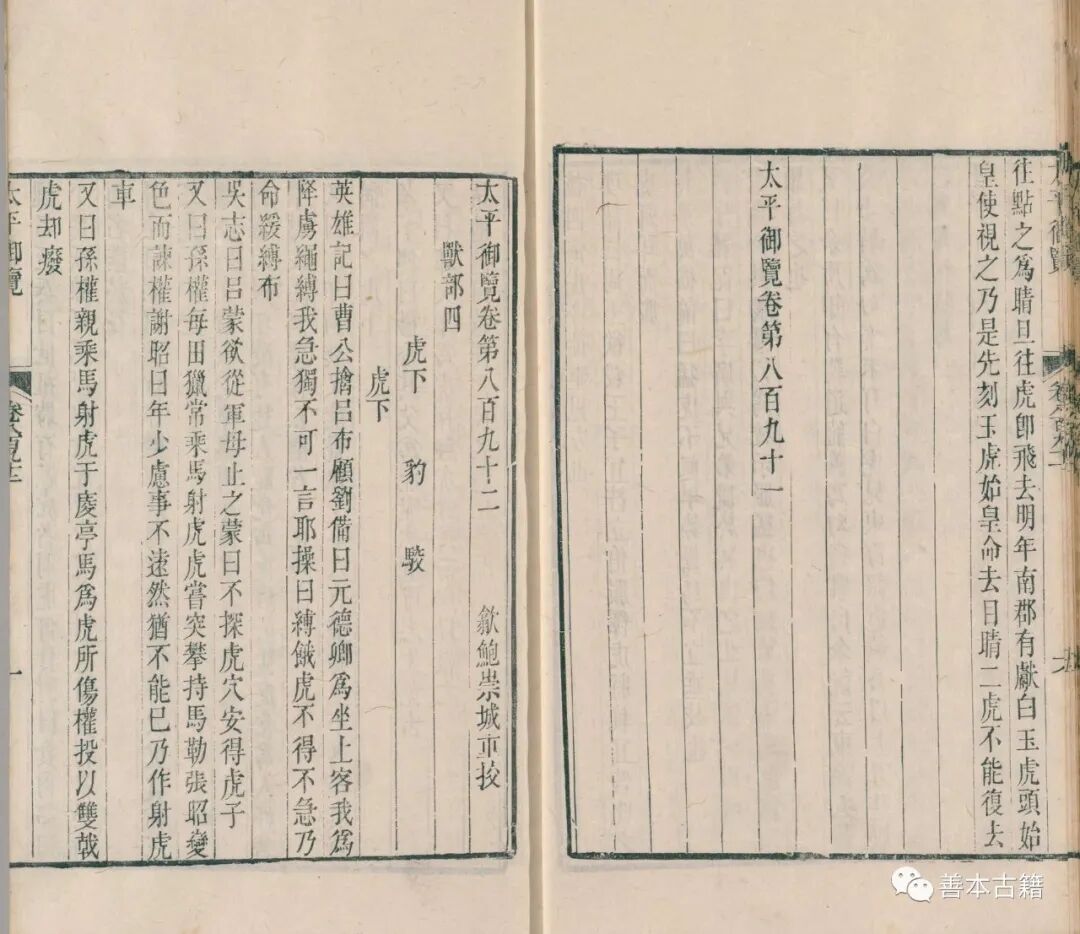 太平御覽
往點之爲睛旦往虎卽飛去明年南郡有獻白玉虎頭始
皇使視之乃是先刻玉虎始皇命去目睛二虎不能復去
太平御覽卷第八百九十一
太平御覽卷第八百九十二 歙鮑崇城重挍
獸部四
虎下 豹 駮
虎下
英雄記曰曹公擒吕布顧劉備曰元德卿爲坐上客我爲
降虜繩縛我急獨不可一言耶操曰縛餓虎不得不急乃
命緩縛布
吳志曰吕蒙欲從軍母止之蒙曰不探虎穴安得虎子
又曰孫權每田獵常乘馬射虎虎嘗突攀持馬勒張昭變
色而諫權謝昭曰年少慮事不遠然猶不能已乃作射虎
車
又曰孫權親乘馬射虎于庱亭馬爲虎所傷權投以雙戟
虎却癈
太平御覽 一
善本古籍